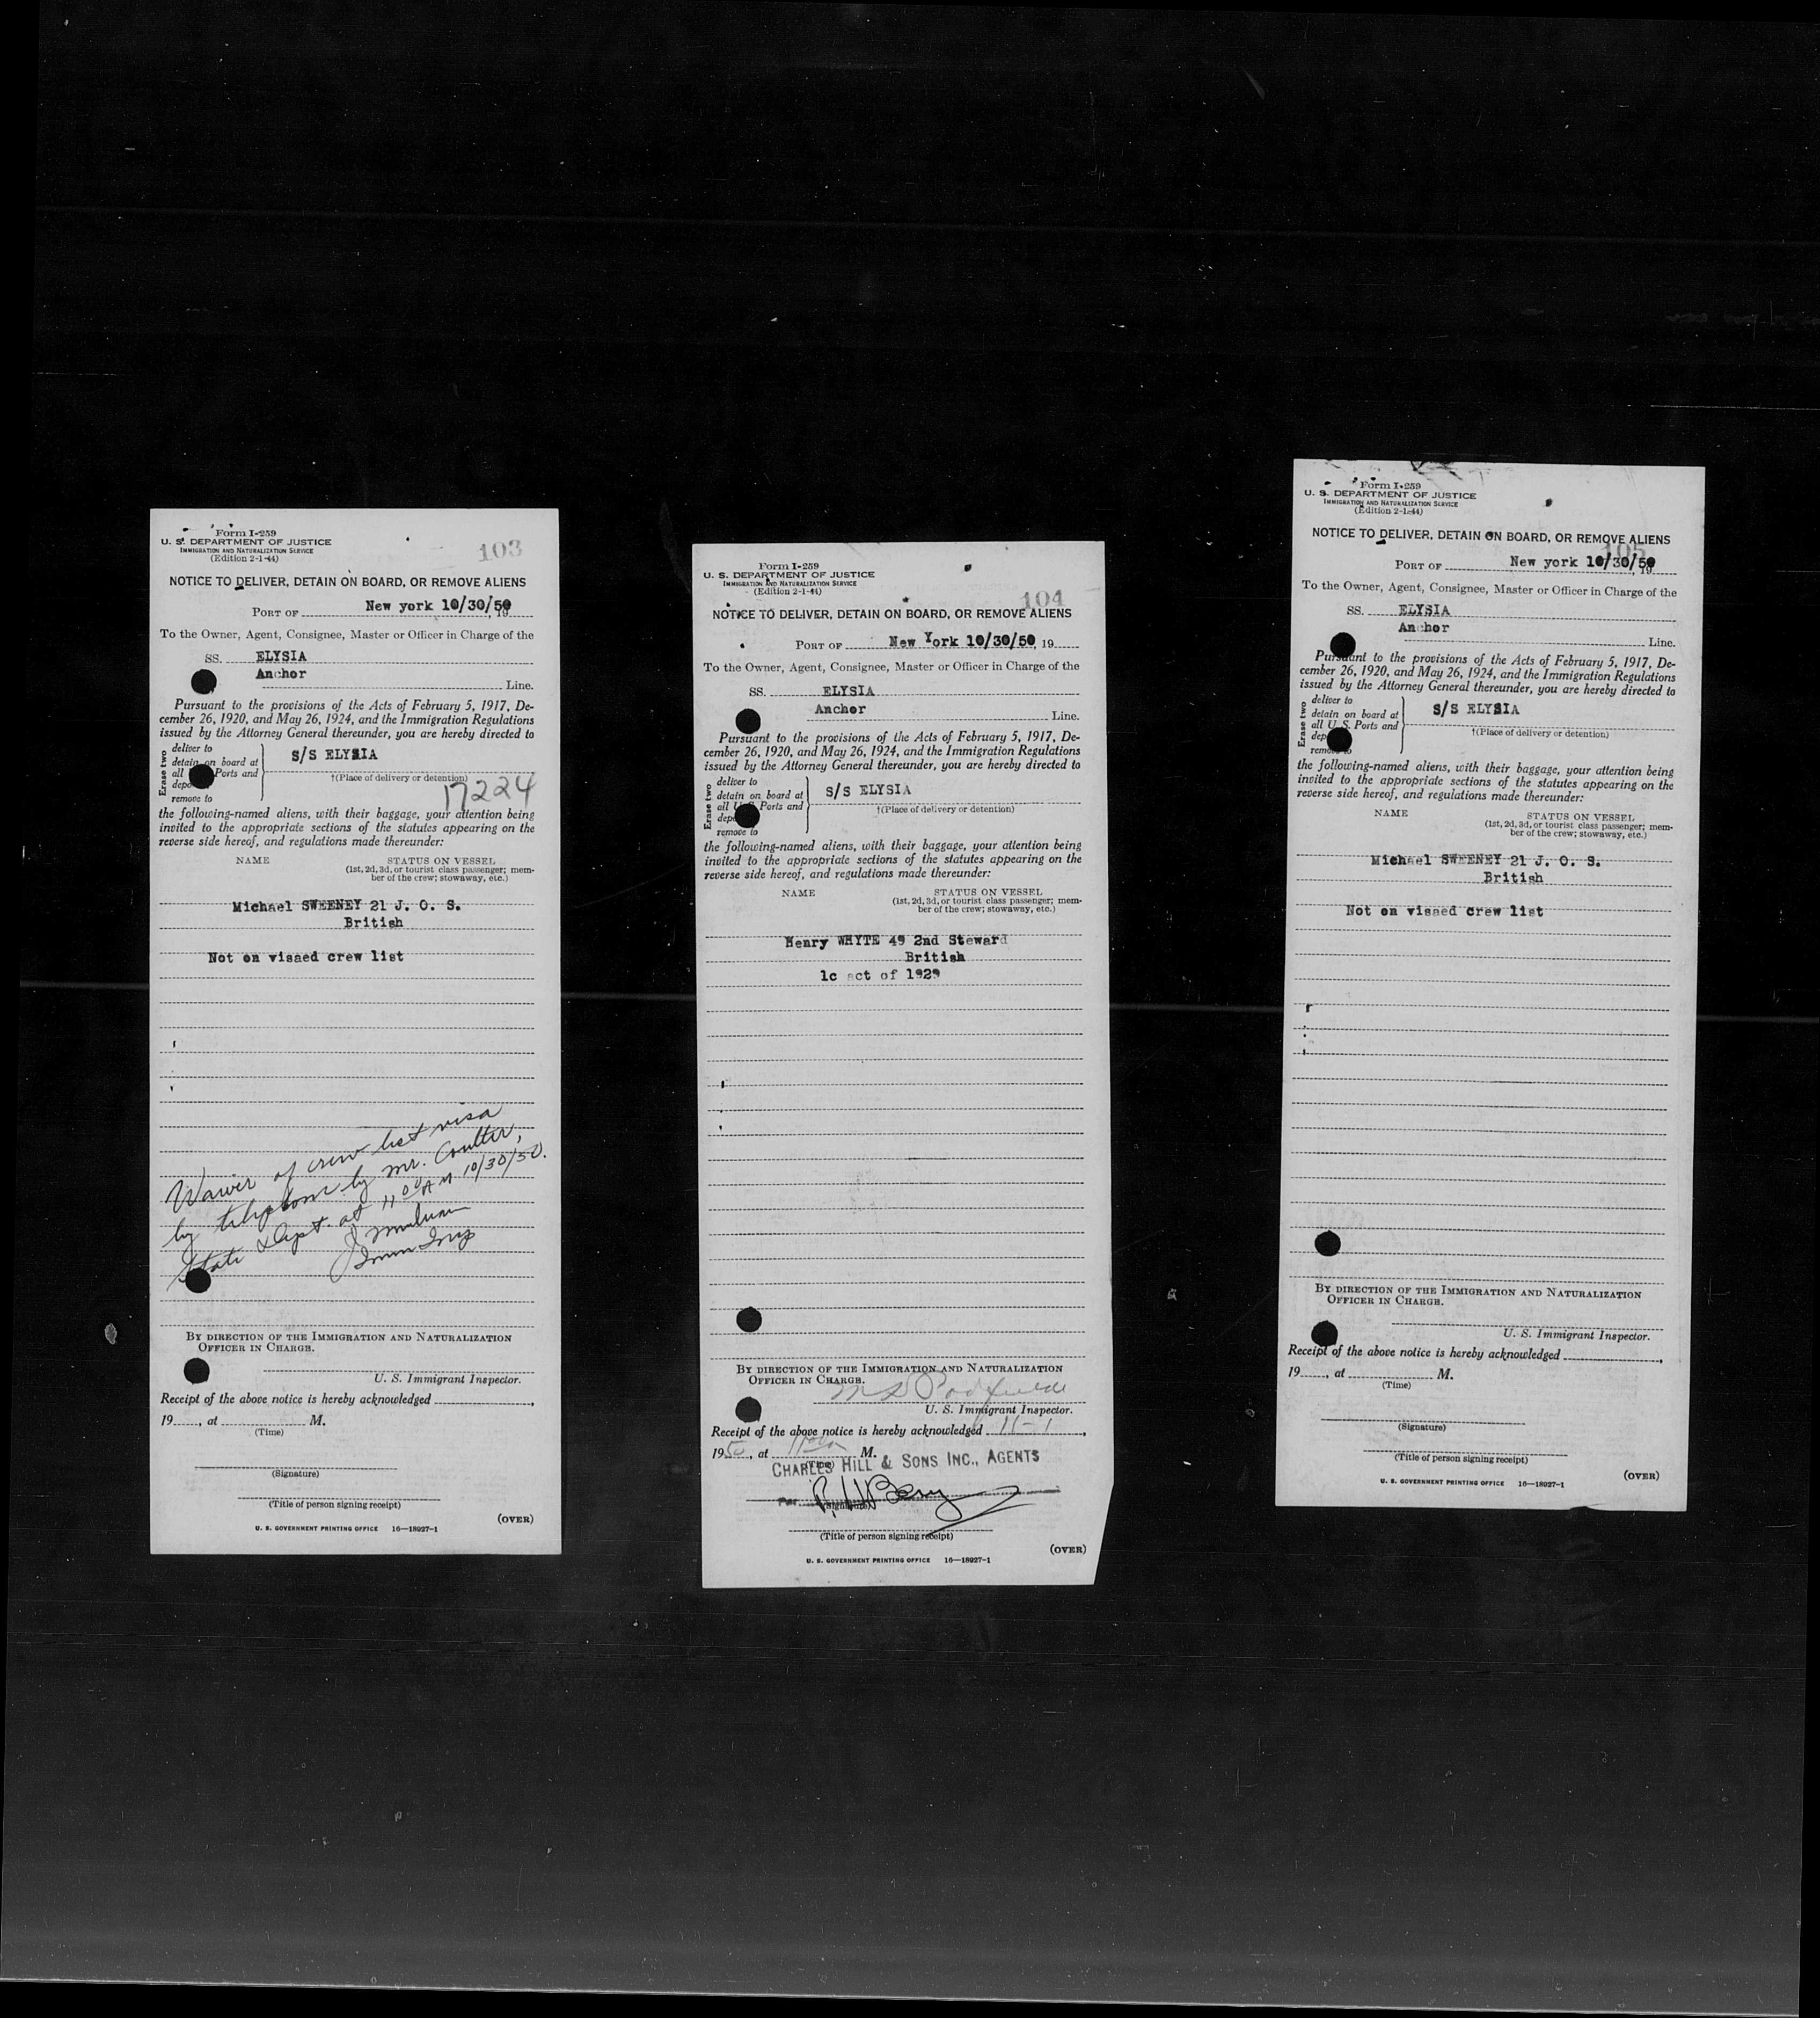 Form I-259
U. S. DEPARTMENT OF JUSTICE
IMMIGRATION AND NATURALIZATION SERVICE
(Edition 2-1-44)
103
NOTICE TO DELIVER, DETAIN ON BOARD, OR REMOVE ALIENS
PORT OF New york 10/30/50, 19
To the Owner, Agent, Consignee, Master or Officer in Charge of the
SS. ELYSIA
Anchor Line.
Pursuant to the provisions of the Acts of February 5, 1917, De-
cember 26, 1920, and May 26, 1924, and the Immigration Regulations
issued by the Attorney General thereunder, you are hereby directed to
Erase two
deliver to
detain on board at
all Ports and
remove to
S/S ELYSIA
†(Place of delivery or detention)
17224
the following-named aliens, with their baggage, your attention being
invited to the appropriate sections of the statutes appearing on the
reverse side hereof, and regulations made thereunder:
NAME STATUS ON VESSEL
(1st, 2d, 3d, or tourist class passenger; mem-
ber of the crew; stowaway, etc.)
Michael SWEENEY 21 J. O. S.
British
Not on visaed crew list
Waiver of crew list visa
by telephone by Mr. Coulter,
State Dept. at 11 00 AM 10/30/50.
Imm Insp
BY DIRECTION OF THE IMMIGRATION AND NATURALIZATION
OFFICER IN CHARGE.
U. S. Immigrant Inspector.
Receipt of the above notice is hereby acknowledged
19, at M.
(Time)
(Signature)
(Title of person signing receipt)
(OVER)
U. S. GOVERNMENT PRINTING OFFICE 16—18927-1
Form I-259
U. S. DEPARTMENT OF JUSTICE
IMMIGRATION AND NATURALIZATION SERVICE
(Edition 2-1-44)
104
NOTICE TO DELIVER, DETAIN ON BOARD, OR REMOVE ALIENS
PORT OF New York 10/30/50, 19
To the Owner, Agent, Consignee, Master or Officer in Charge of the
SS. ELYSIA
Anchor Line.
Pursuant to the provisions of the Acts of February 5, 1917, De-
cember 26, 1920, and May 26, 1924, and the Immigration Regulations
issued by the Attorney General thereunder, you are hereby directed to
Erase two
deliver to
detain on board at
all U.S. Ports and
remove to
S/S ELYSIA
†(Place of delivery or detention)
the following-named aliens, with their baggage, your attention being
invited to the appropriate sections of the statutes appearing on the
reverse side hereof, and regulations made thereunder:
NAME STATUS ON VESSEL
(1st, 2d, 3d, or tourist class passenger; mem-
ber of the crew; stowaway, etc.)
Henry WHYTE 49 2nd Steward
British
1c act of 1929
BY DIRECTION OF THE IMMIGRATION AND NATURALIZATION
OFFICER IN CHARGE.
U. S. Immigrant Inspector.
Receipt of the above notice is hereby acknowledged 11-1,
1950, at M.
(Time)
CHARLES HILL & SONS INC., AGENTS
(Signature)
(Title of person signing receipt)
(OVER)
U. S. GOVERNMENT PRINTING OFFICE 16—18927-1
Form I-259
U. S. DEPARTMENT OF JUSTICE
IMMIGRATION AND NATURALIZATION SERVICE
(Edition 2-1-44)
NOTICE TO DELIVER, DETAIN ON BOARD, OR REMOVE ALIENS
105
PORT OF New york 10/30/50, 19
To the Owner, Agent, Consignee, Master or Officer in Charge of the
SS. ELYSIA
Anchor Line.
Pursuant to the provisions of the Acts of February 5, 1917, De-
cember 26, 1920, and May 26, 1924, and the Immigration Regulations
issued by the Attorney General thereunder, you are hereby directed to
Erase two
deliver to
detain on board at
all U. S. Ports and
remove to
S/S ELYSIA
†(Place of delivery or detention)
the following-named aliens, with their baggage, your attention being
invited to the appropriate sections of the statutes appearing on the
reverse side hereof, and regulations made thereunder:
NAME STATUS ON VESSEL
(1st, 2d, 3d, or tourist class passenger; mem-
ber of the crew; stowaway, etc.)
Michael SWEENEY 21 J. O. S.
British
Not on visaed crew list
BY DIRECTION OF THE IMMIGRATION AND NATURALIZATION
OFFICER IN CHARGE.
U. S. Immigrant Inspector.
Receipt of the above notice is hereby acknowledged
19, at M.
(Time)
(Signature)
(Title of person signing receipt)
(OVER)
U. S. GOVERNMENT PRINTING OFFICE 16—18927-1